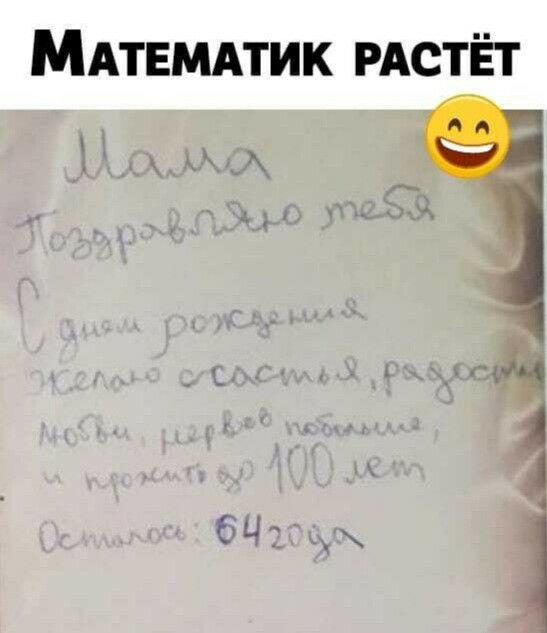 Математик растёт
Мама
Поздравляю тебя
С днем рождения
желаю счастья, радости
любви, нервов побольше,
и прожить до 100 лет
Осталось: 64 года